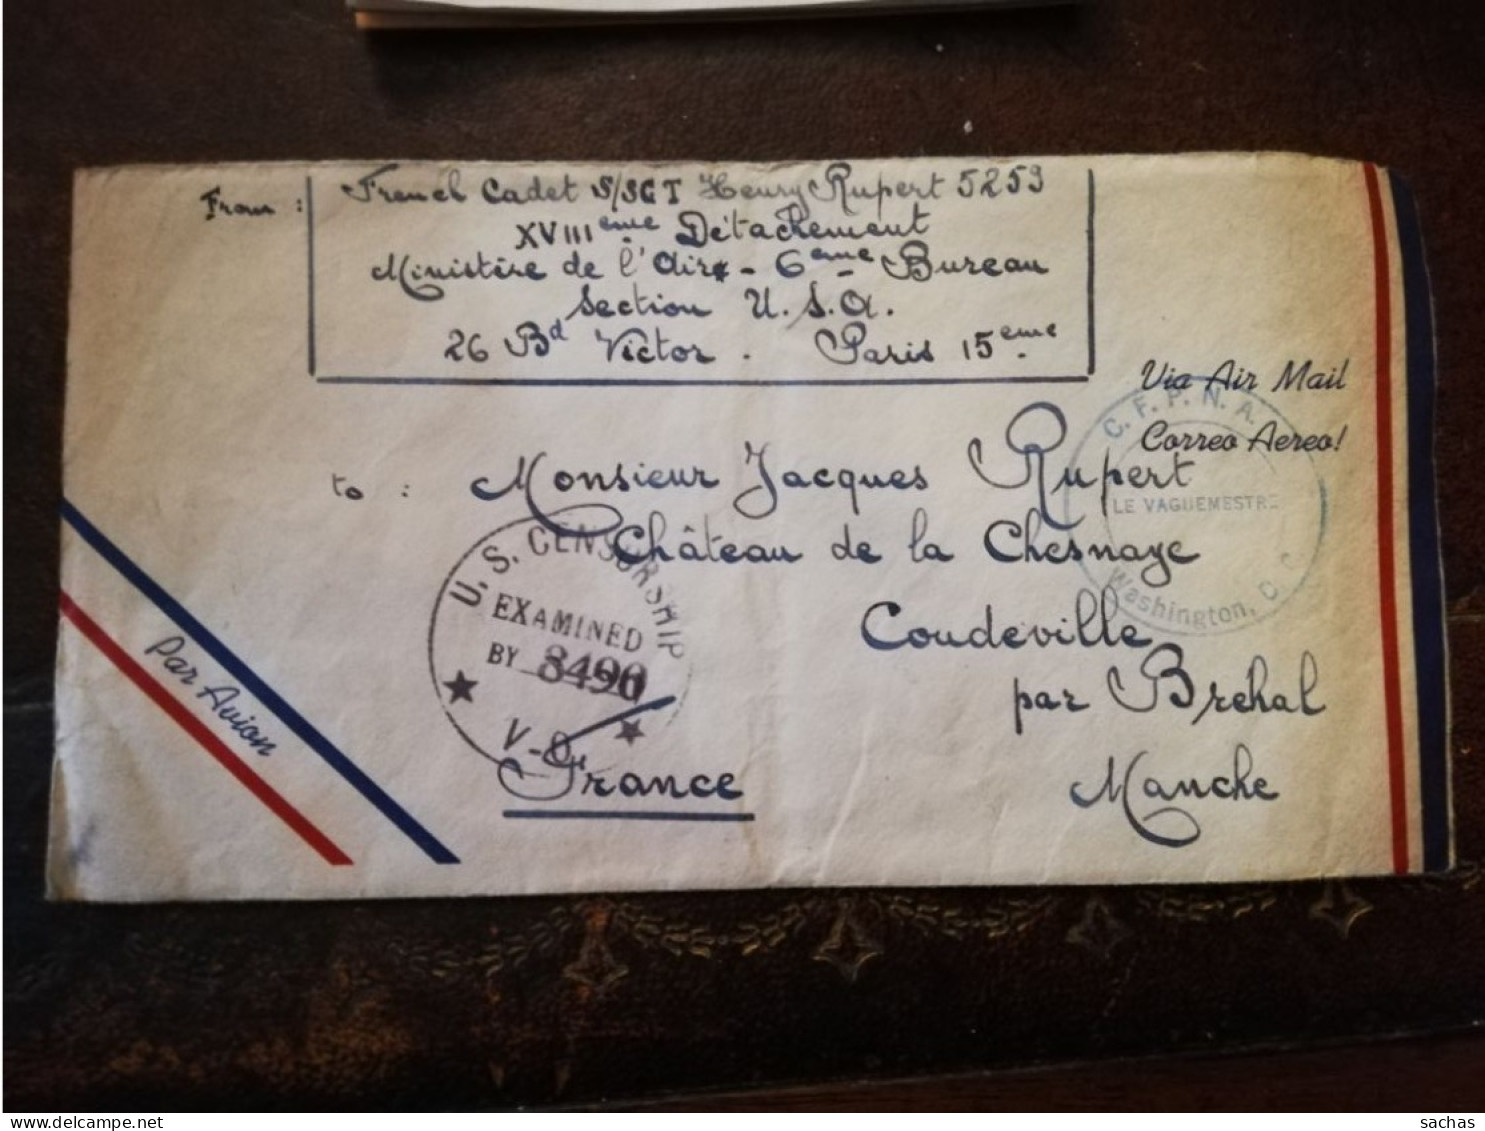 From : French Cadet S/SGT Henry Rupert 5253
XVIIIeme Détachement
Ministère de l'Air - 6eme Bureau
Section U.S.A.
26 Bd Victor . Paris 15eme
Via Air Mail
Correo Aereo!
C. F. P. N. A.
LE VAGUEMESTRE
Washington, D. C.
to : Monsieur Jacques Rupert
Château de la Chesnaye
Coudeville
par Brehal
Manche
France
U. S. CENSORSHIP
EXAMINED
BY 8490
Par Avion
www.delcampe.net
sachas